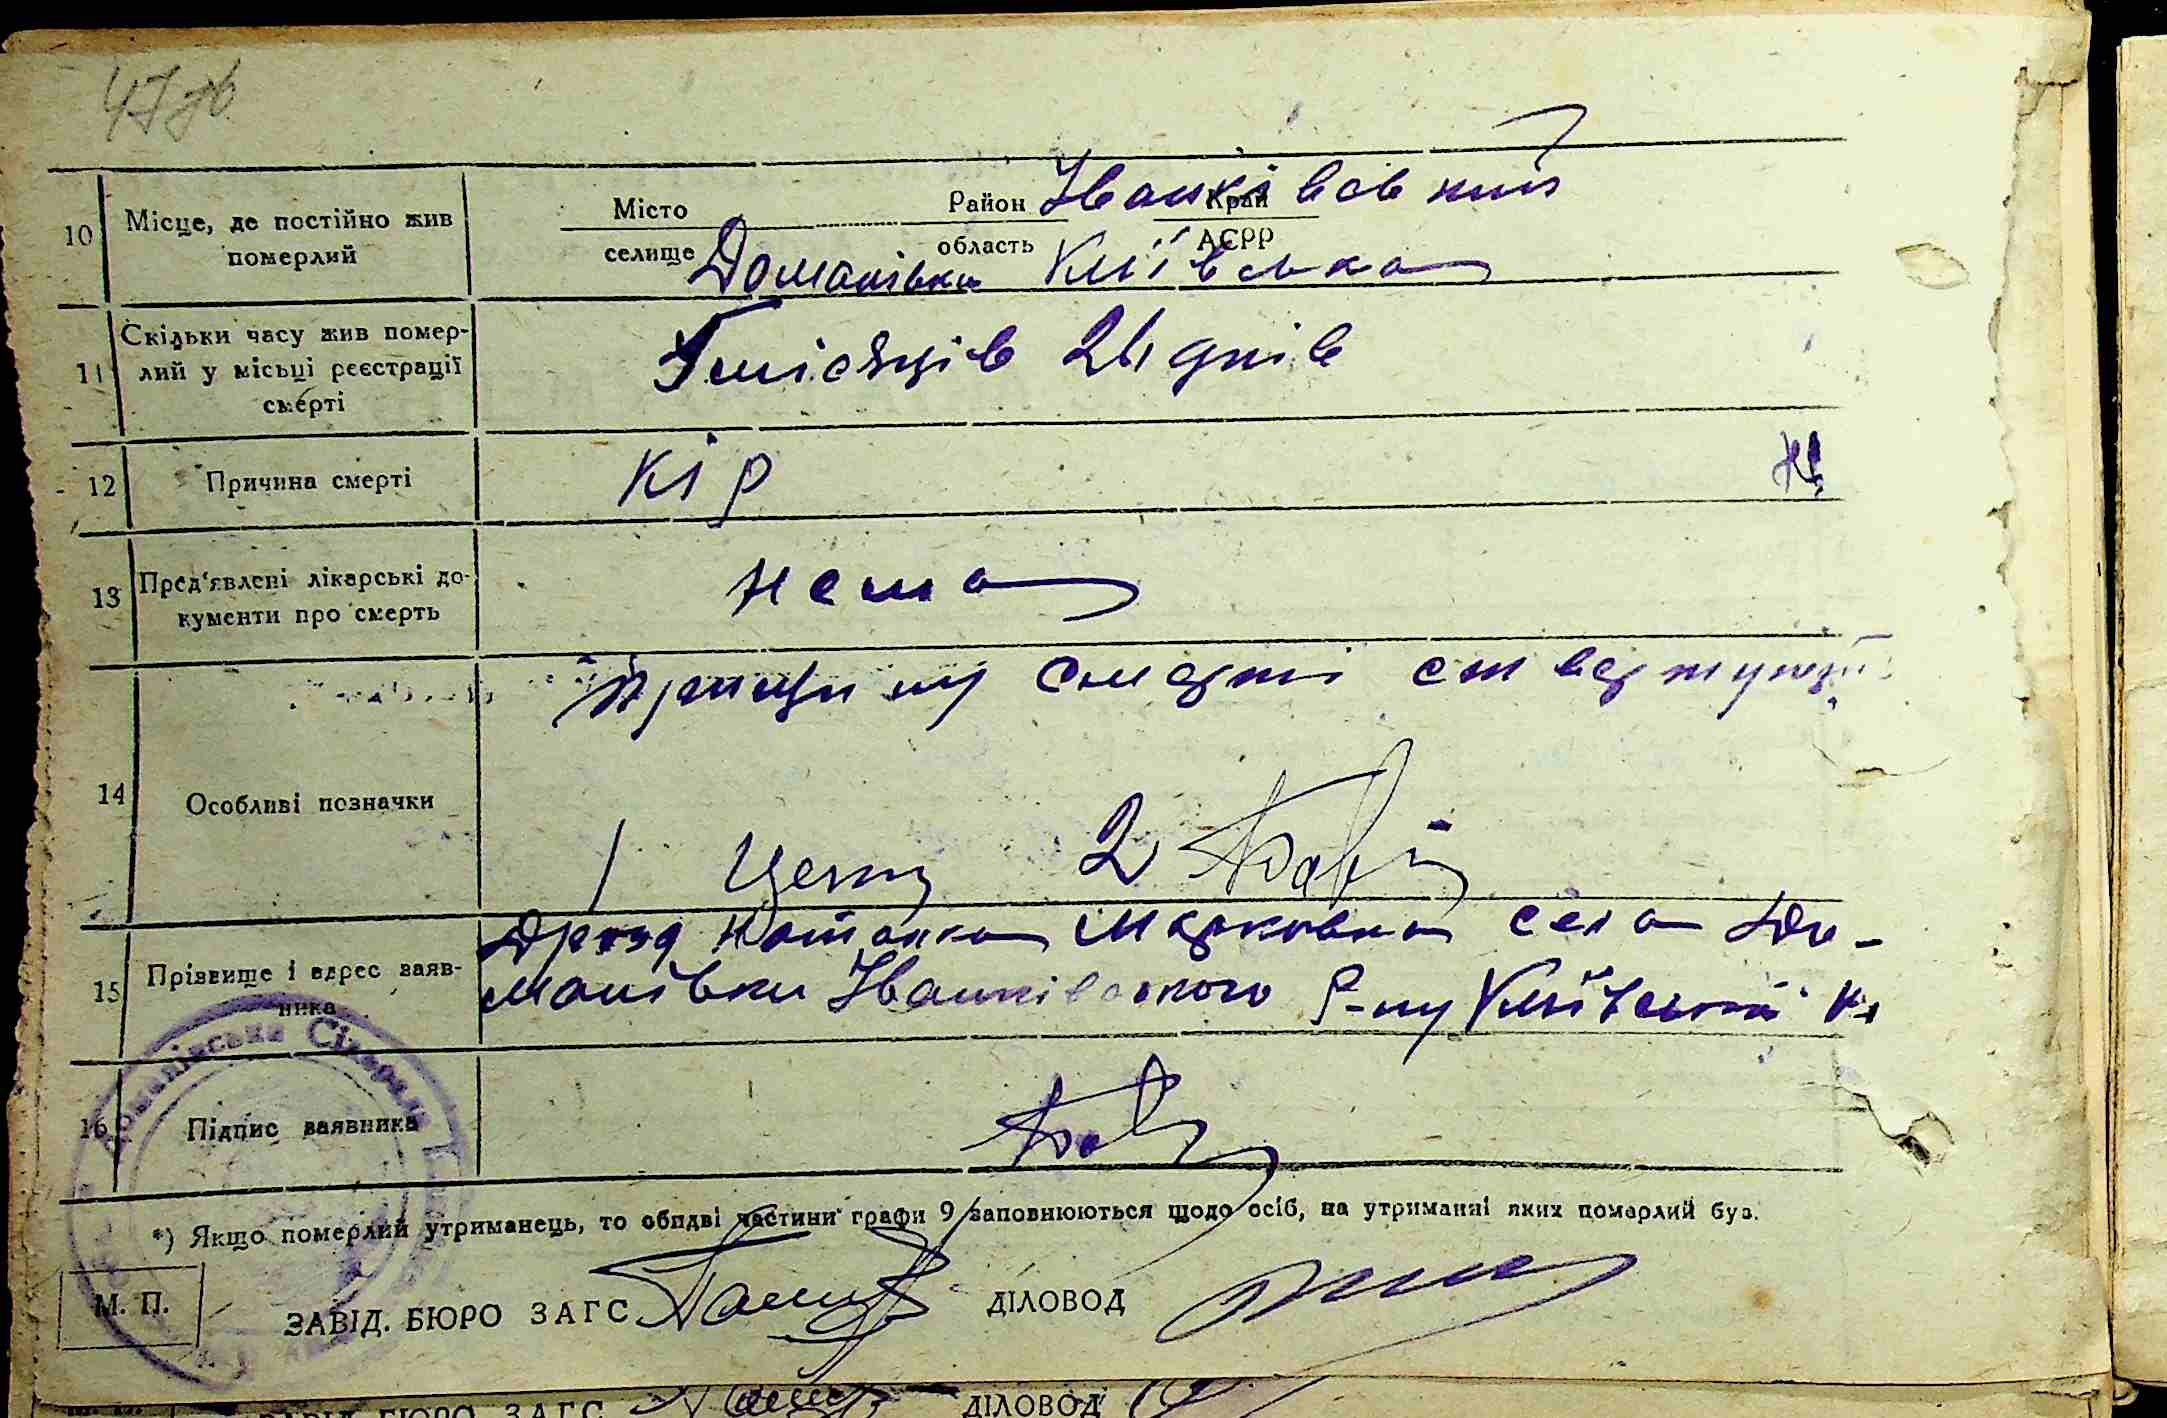 47зв.
10 Місце, де постійно жив померлий Місто Район Іванківський Край
селище Доманівка область Київська АСРР
11 Скільки часу жив помер-
лий у місьці реєстрації
смерті
місяців днів
12 Причина смерті Кір
13 Пред'явлені лікарські до-
кументи про смерть
нема
14 Особливі позначки
Причину смерті стверджують
1 2
15 Прізвище і адрес заяв-
ника
Дрозд Наталка Марковна села До-
манівки Іванківського р-ну Київської
16 Підпис заявника
Доманівська Сільрада
*) Якщо померлий утриманець, то обидві частини графи 9 заповнюються щодо осіб, на утриманні яких померлий був.
М. П.
ЗАВІД. БЮРО ЗАГС ДІЛОВОД
ЗАВІД. БЮРО ЗАГС ДІЛОВОД